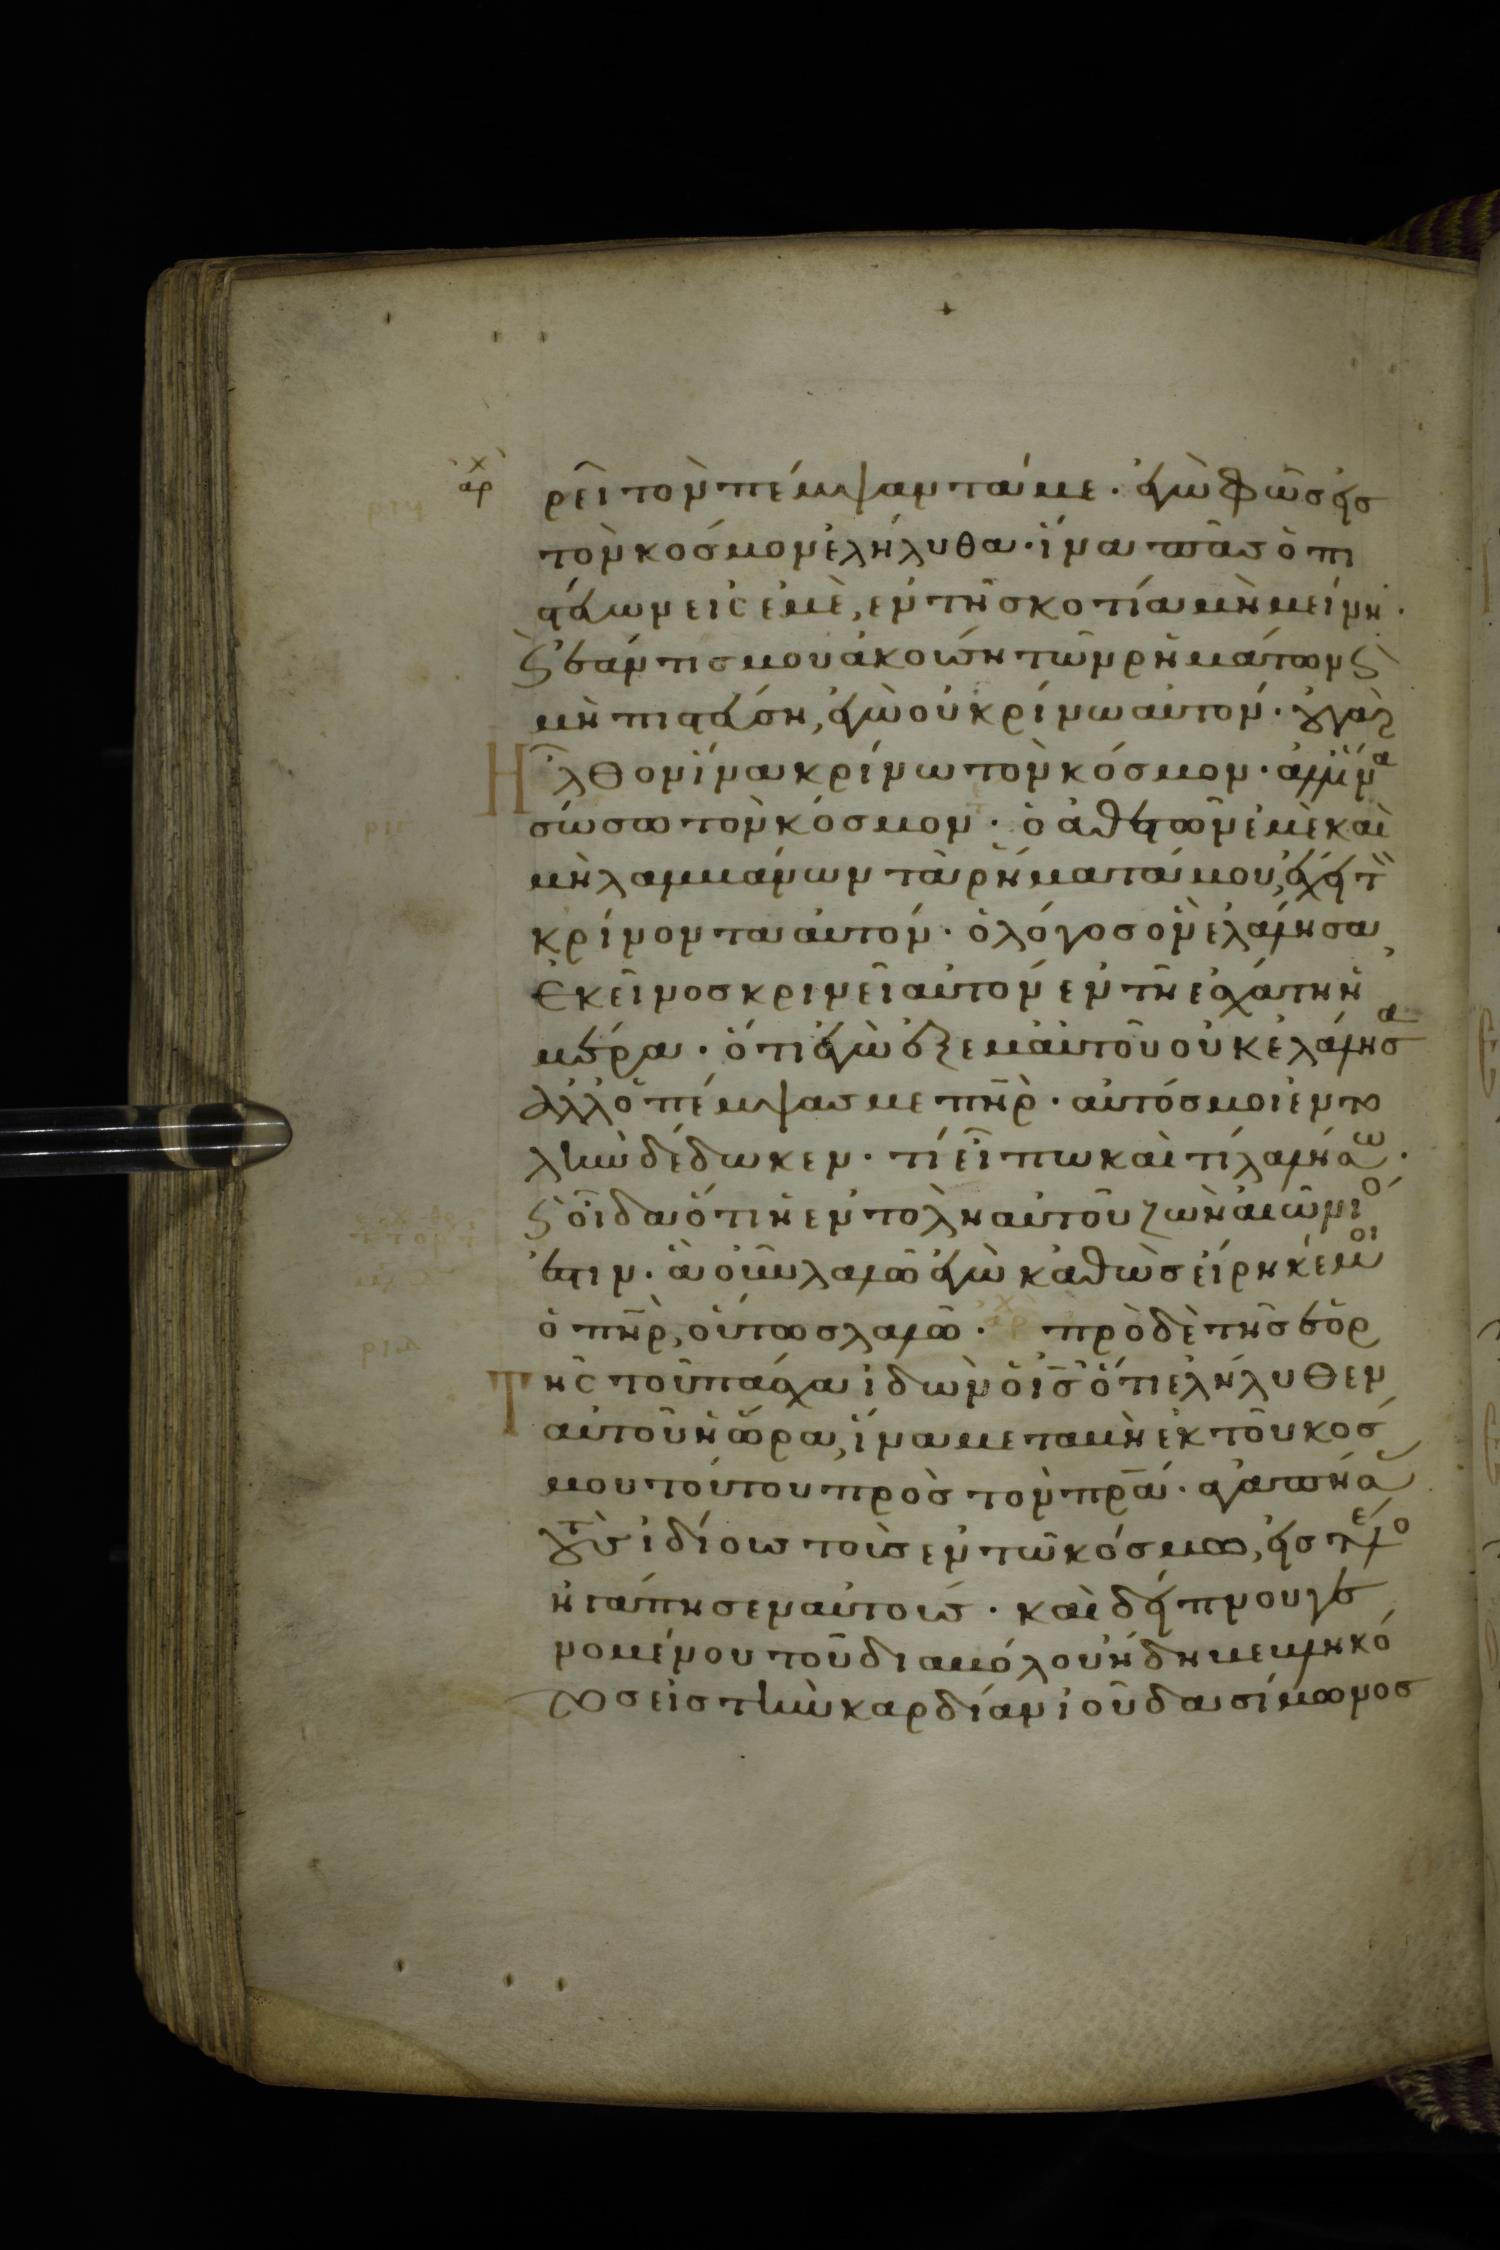 ἀρχ
ρεῖ τὸν πέμψαντά με · ἐγὼ φῶς εἰς
τὸν κόσμον ἐλήλυθα · ἵνα πᾶς ὁ πι
στεύων εἰς ἐμὲ, ἐν τῇ σκοτία μὴ μείνη ·
ϗ ἐάν τις μου ἀκούση τῶν ρημάτων ϗ
μὴ πιστεύση, ἐγὼ οὐ κρίνω αὐτόν · οὐ γὰρ
Ηλθον ἵνα κρίνω τὸν κόσμον · ἀλλ' ἵνα
σώσω τὸν κόσμον · ὁ ἀθετῶν ἐμὲ καὶ
μὴ λαμβάνων τὰ ρήματά μου, ἔχει τὸν
κρίνοντα αὐτόν · ὁ λόγος ὃν ἐλάλησα,
Ἐκεῖνος κρινεῖ αὐτόν ἐν τῇ ἐσχάτη ἡ
μέρα · ὅτι ἐγὼ ἐξ ἐμαυτοῦ οὐκ ἐλάλησα
ἀλλ' ὁ πέμψας με πηρ · αὐτός μοι ἐντο
λὴν δέδωκεν · τί εἴπω καὶ τί λαλήσω ·
ϗ οἶδα ὅτι ἡ ἐντολὴ αὐτοῦ ζωὴ αἰώνιό
ἐστιν · ἃ οὖν λαλῶ ἐγὼ καθὼς εἴρηκέ μοι
ὁ πηρ, οὕτως λαλῶ · ἀρχ πρὸ δὲ τῆς ἑορ
Της τοῦ πάσχα ἰδὼν ὁ ις ὅτι ἐλήλυθεν
αὐτοῦ ἡ ὥρα, ἵνα μεταβῆ ἐκ τοῦ κόσ
μου τούτου πρὸς τὸν πρα · ἀγαπήσας
τοὺς ἰδίους τοὺς ἐν τῶ κόσμω, εἰς τέλο
ἠγάπησεν αὐτούς · καὶ δείπνου γε
νομένου τοῦ διαβόλου ἤδη βεβληκό
τος εἰς τὴν καρδίαν ἰούδα σίμωνος